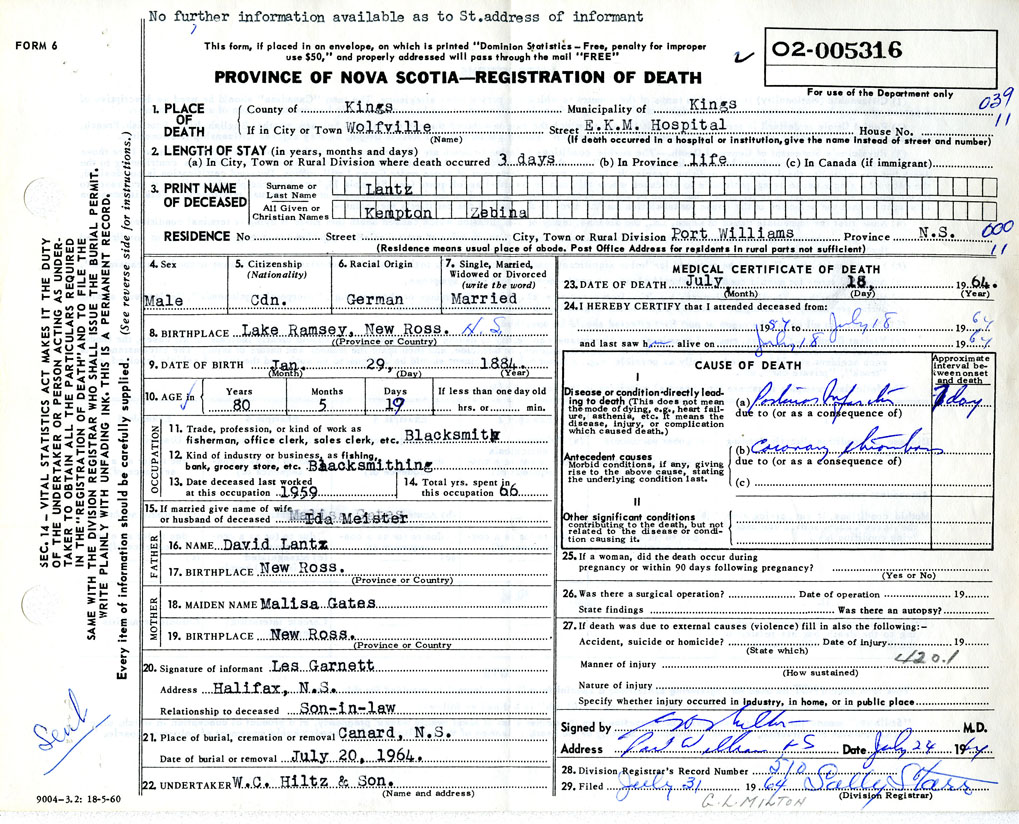 No further information available as to St.address of informant
FORM 6
This form, if placed in an envelope, on which is printed "Dominion Statistics – Free, penalty for improper
use $50," and properly addressed will pass through the mail "FREE"
02-005316
PROVINCE OF NOVA SCOTIA—REGISTRATION OF DEATH
For use of the Department only
039
11
1. PLACE OF DEATH
County of Kings Municipality of Kings
If in City or Town Wolfville Street E.K.M. Hospital House No.
(Name) (If death occurred in a hospital or institution, give the name instead of street and number)
2. LENGTH OF STAY (in years, months and days)
(a) In City, Town or Rural Division where death occurred 3 days (b) In Province life (c) In Canada (if immigrant)
3. PRINT NAME OF DECEASED
Surname or Last Name Lantz
All Given or Christian Names Kempton Zebina
RESIDENCE No Street City, Town or Rural Division Port Williams Province N.S.
000
11
(Residence means usual place of abode. Post Office Address for residents in rural parts not sufficient)
4. Sex
Male
5. Citizenship
(Nationality)
Cdn.
6. Racial Origin
German
7. Single, Married,
Widowed or Divorced
(write the word)
Married
8. BIRTHPLACE Lake Ramsey, New Ross. N.S.
(Province or Country)
9. DATE OF BIRTH Jan. 29, 1884.
(Month) (Day) (Year)
10. AGE in
Years Months Days If less than one day old
80 5 19 hrs. or min.
OCCUPATION
11. Trade, profession, or kind of work as
fisherman, office clerk, sales clerk, etc. Blacksmith
12. Kind of industry or business, as fishing,
bank, grocery store, etc. Blacksmithing
13. Date deceased last worked
at this occupation 1959
14. Total yrs. spent in
this occupation 66
15. If married give name of wife
or husband of deceased Ida Meister
FATHER
16. NAME David Lantz
17. BIRTHPLACE New Ross.
(Province or Country)
MOTHER
18. MAIDEN NAME Malisa Gates
19. BIRTHPLACE New Ross.
(Province or Country
20. Signature of informant Les Garnett
Address Halifax, N.S.
Relationship to deceased Son-in-law
21. Place of burial, cremation or removal Canard, N.S.
Date of burial or removal July 20, 1964.
22. UNDERTAKER W.C. Hiltz & Son.
(Name and address)
MEDICAL CERTIFICATE OF DEATH
23. DATE OF DEATH July 18, 1964.
(Month) (Day) (Year)
24. I HEREBY CERTIFY that I attended deceased from:
to July 18 1964
and last saw h alive on July 18 1964
CAUSE OF DEATH
Approximate
interval be-
tween onset
and death
I
Disease or condition directly lead-
ing to death (This does not mean
the mode of dying, e.g., heart fail-
ure, asthenia, etc. It means the
disease, injury, or complication
which caused death.)
(a) Posterior Infarction day
due to (or as a consequence of)
Antecedent causes
Morbid conditions, if any, giving
rise to the above cause, stating
the underlying condition last.
(b) Coronary thrombosis
due to (or as a consequence of)
(c)
II
Other significant conditions
contributing to the death, but not
related to the disease or condi-
tion causing it.
25. If a woman, did the death occur during
pregnancy or within 90 days following pregnancy?
(Yes or No)
26. Was there a surgical operation? Date of operation 19
State findings Was there an autopsy?
27. If death was due to external causes (violence) fill in also the following:–
Accident, suicide or homicide? Date of injury 19
(State which)
420.1
Manner of injury
(How sustained)
Nature of injury
Specify whether injury occurred in industry, in home, or in public place
Signed by M.D.
Address Port Williams NS Date July 24 1964
28. Division Registrar's Record Number 510
29. Filed July 31 1964 Sally Starr
(Division Registrar)
G. L. MILTON
SEC. 14 – VITAL STATISTICS ACT MAKES IT THE DUTY
OF THE UNDERTAKER OR PERSON ACTING AS UNDER-
TAKER TO OBTAIN ALL THE PARTICULARS REQUIRED
IN THE "REGISTRATION OF DEATH" AND TO FILE THE
SAME WITH THE DIVISION REGISTRAR WHO SHALL ISSUE THE BURIAL PERMIT.
WRITE PLAINLY WITH UNFADING INK. THIS IS A PERMANENT RECORD.
Every item of information should be carefully supplied. (See reverse side for instructions.)
9004–3.2: 18-5-60